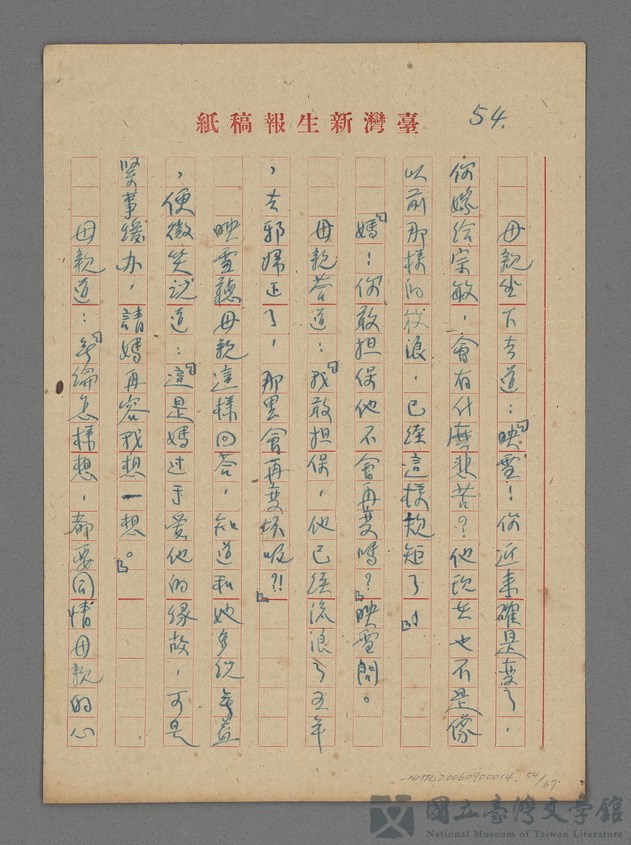 54.
紙稿報生新灣臺
母親坐下去道:「映雪!你近來確是変了,
你嫁给宗敏,會有什麼悲苦?他現在也不是像
以前那樣的放浪,已經這樣規矩了!」
「媽!你敢担保他不會再变嗎?」映雪問。
母親荅道:「我敢担保,他已経流浪了五年
,去邪歸正了,那里會再变坏呢?!」
映雪聽母親這樣回荅,知道和她多说無益
,便微笑说道:「這是媽过于爱他的缘故,可是
緊事缓办,請媽再容我想一想。」
母親道:「無論怎樣想,都要同情母親的心
NMTL20060900014 54/67
國立臺灣文學館
National Museum of Taiwan Literature